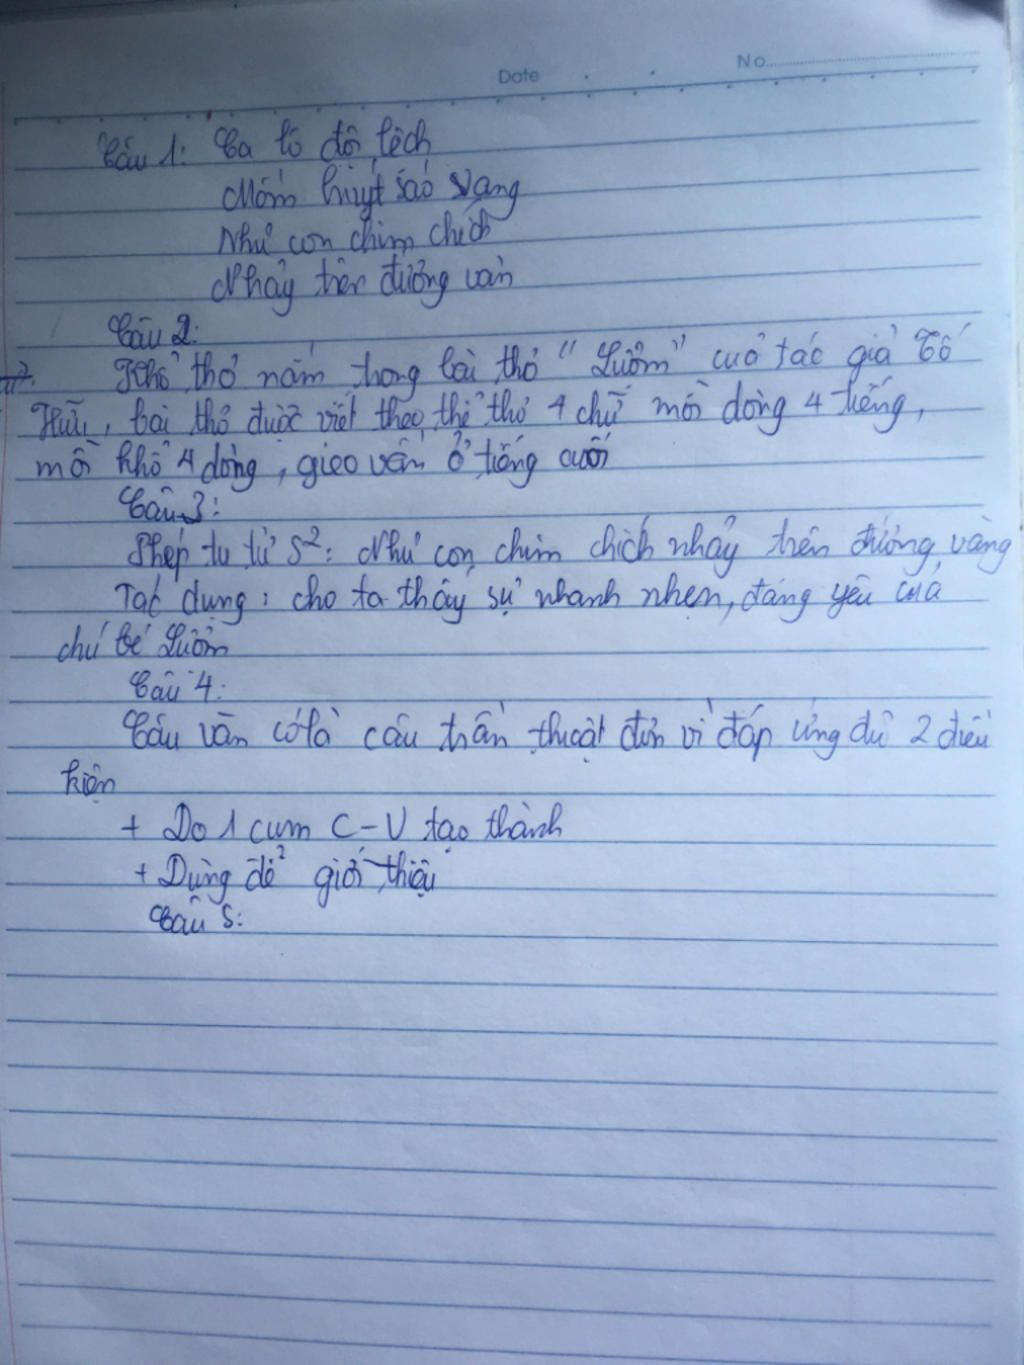 Date No
Câu 1: Ca lô đội lệch
Mồm huýt sáo vang
Như con chim chích
Nhảy trên đường vàn
Câu 2:
Khổ thơ nằm trong bài thơ " Lượm" của tác giả Tố
Hữu, bài thơ được viết theo thể thơ 4 chữ mỗi dòng 4 tiếng,
mỗi khổ 4 dòng, gieo vần ở tiếng cuối
Câu 3:
Phép tu từ S²: Như con chim chích nhảy trên đường vàng
Tác dụng: cho ta thấy sự nhanh nhẹn, đáng yêu của
chú bé Lượm
Câu 4:
Câu văn có là câu trần thuật đơn vì đáp ứng đủ 2 điều
kiện
+ Do 1 cụm C-V tạo thành
+ Dùng để giới thiệu
Câu 5: